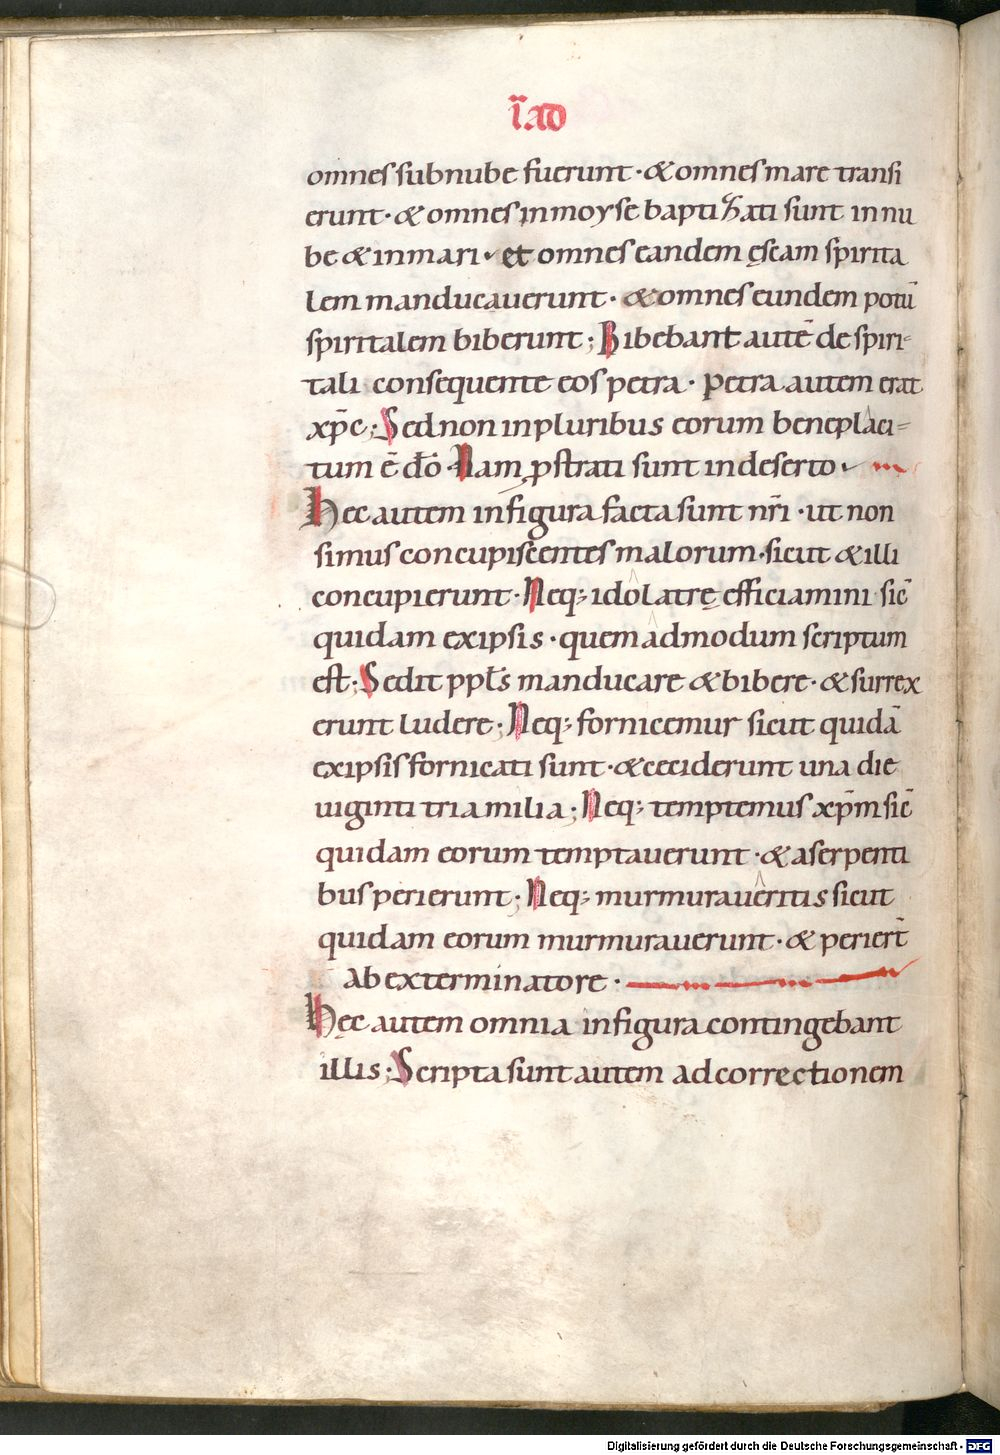 ī ad
omnes sub nube fuerunt · & omnes mare transi
erunt · & omnes in moyse baptizati sunt in nu
be & in mari · et omnes eandem ęscam spirita
lem manducauerunt · & omnes eundem potū
spiritalem biberunt ; Bibebant autē de spiri-
tali consequente eos petra · petra autem erat
xp̄c ; Sed non in pluribus eorum beneplaci-
tum ē dō · Nam ꝓstrati sunt in deserto ·
Hec autem in figura facta sunt nr̄i · ut non
simus concupiscentes malorum · sicut & illi
concupierunt · Neq; idolatrę efficiamini sic̄
quidam ex ipsis · quem admodum scriptum
est ; Sedit ppl̄s manducare & bibere · & surrex
erunt ludere ; Neq; fornicemur sicut quidā
ex ipsis fornicati sunt · & ceciderunt una die
uiginti tria milia ; Neq; temptemus xp̄m sic̄
quidam eorum temptauerunt · & a serpenti
bus perierunt ; Neq; murmuraueritis sicut
quidam eorum murmurauerunt · & perier̄t
ab exterminatore ·
Hęc autem omnia in figura contingebant
illis ; Scripta sunt autem ad correctionem
Digitalisierung gefördert durch die Deutsche Forschungsgemeinschaft - DFG